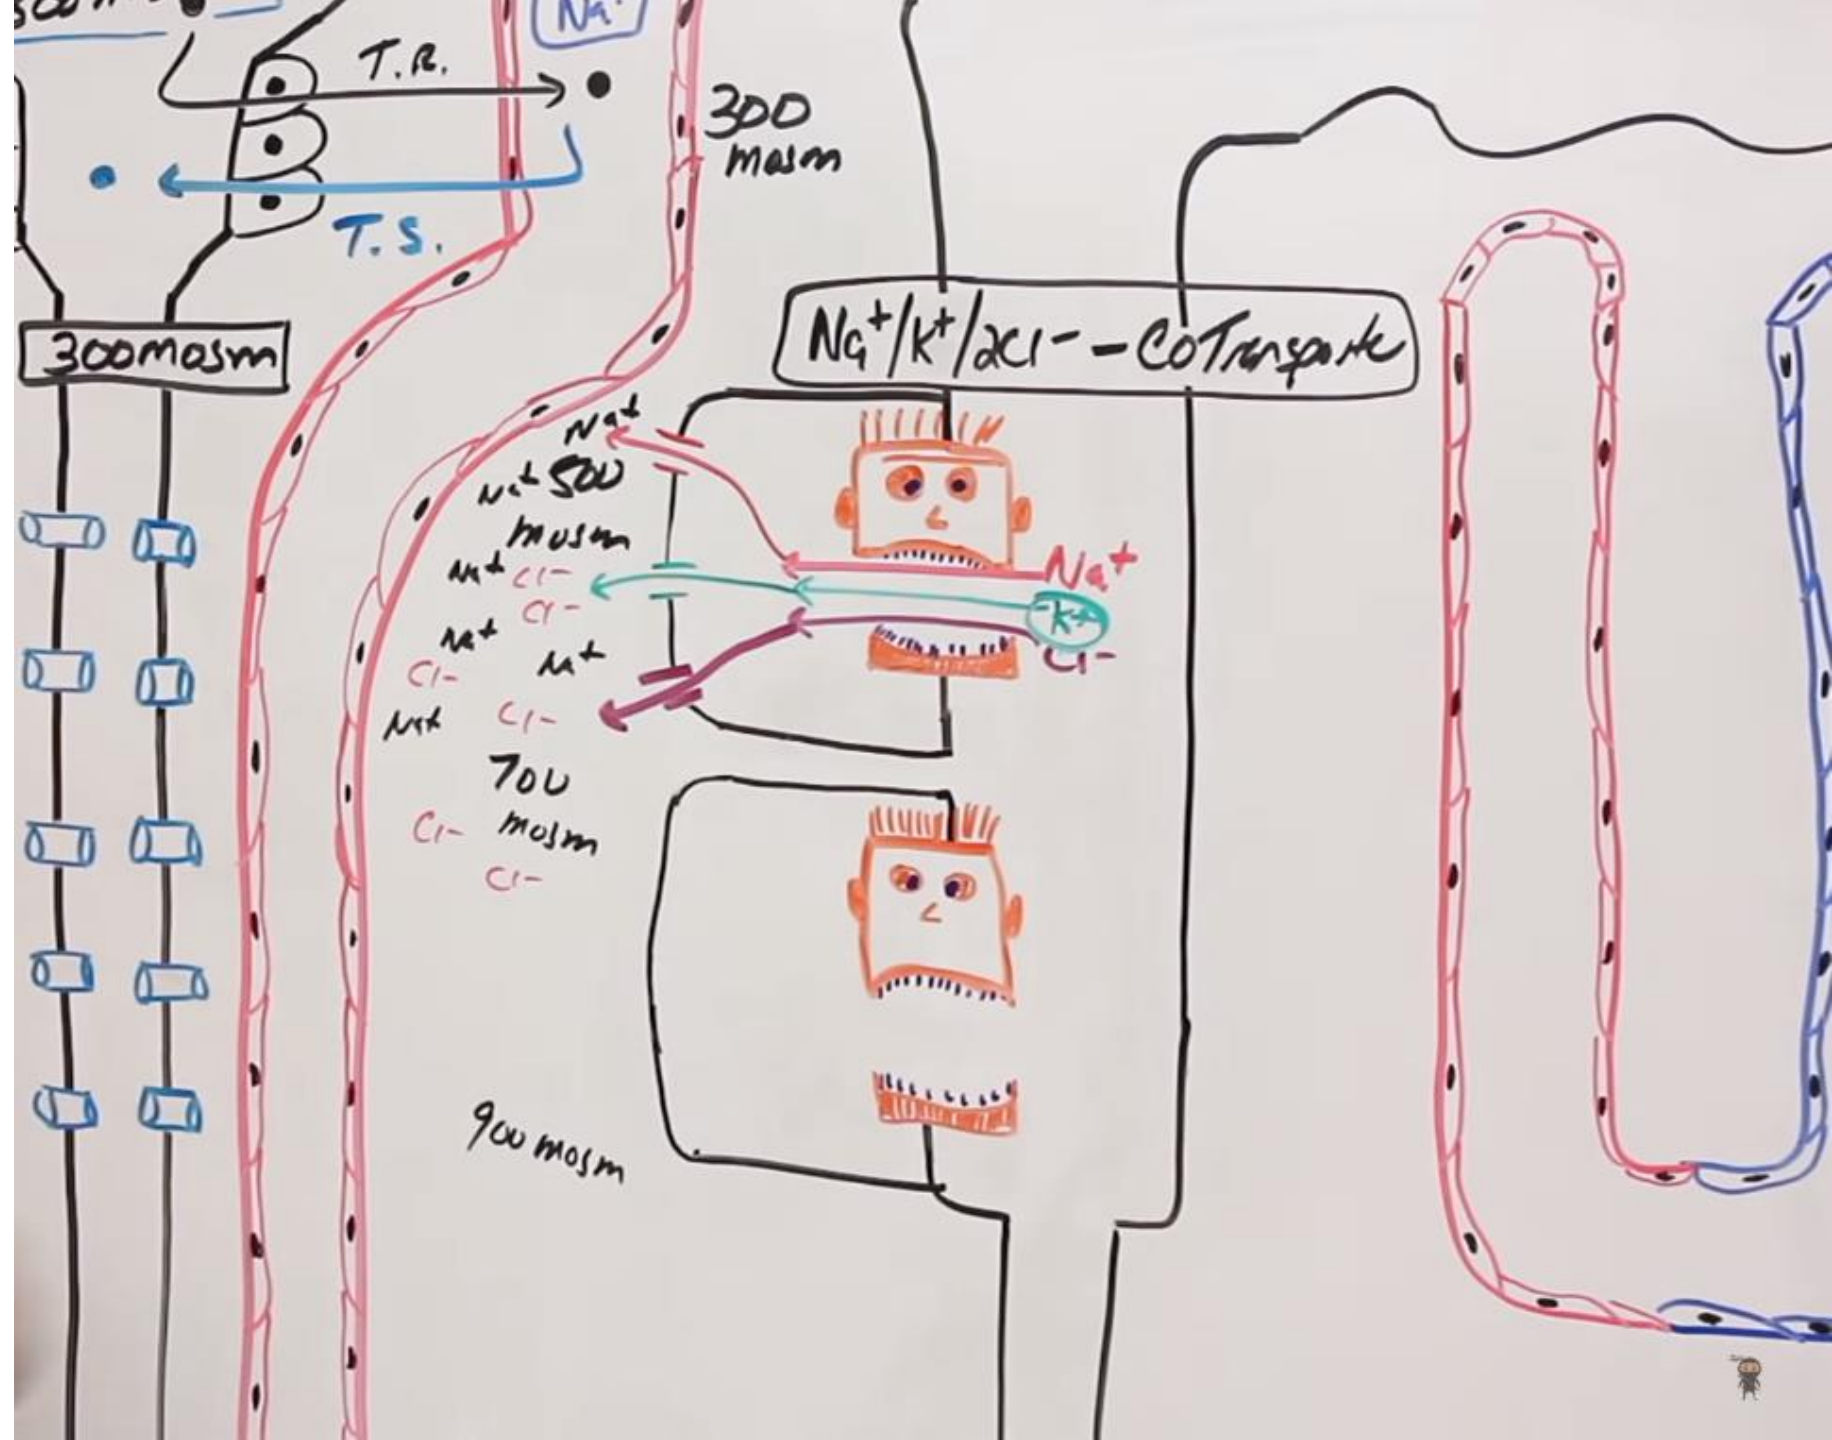 Na+
T.R.
300
mosm
T.S.
300mosm
Na+/K+/2Cl- - CoTransporte
Na+
Na+ 500
mosm
Na+ Cl-
Cl-
Na+
Cl-
Na+
Na+
Cl-
Na+
K+
Cl-
700
mosm
Cl-
Cl-
900 mosm